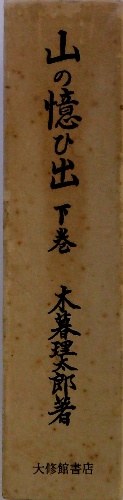 山の憶ひ出 下巻
木暮理太郎著
大修館書店